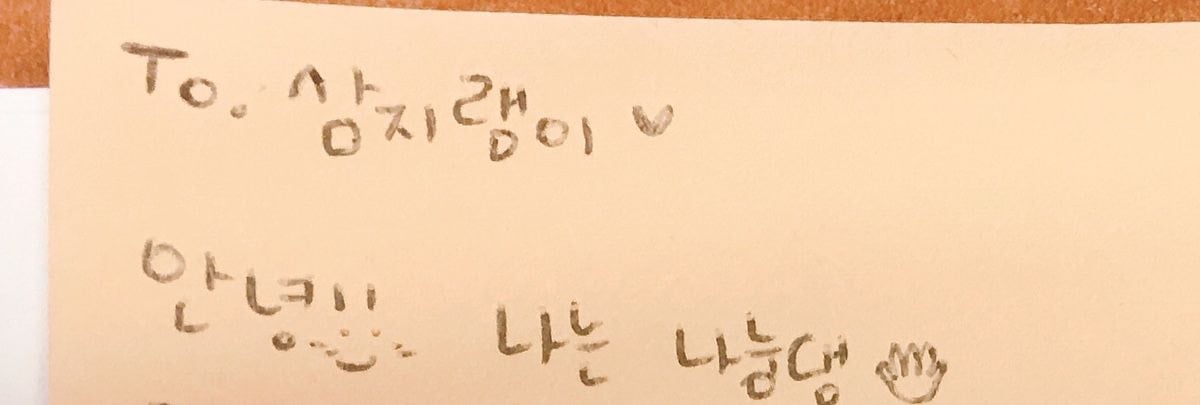 To. 상지랭이 ♡
안녕!! 나는 나능댕